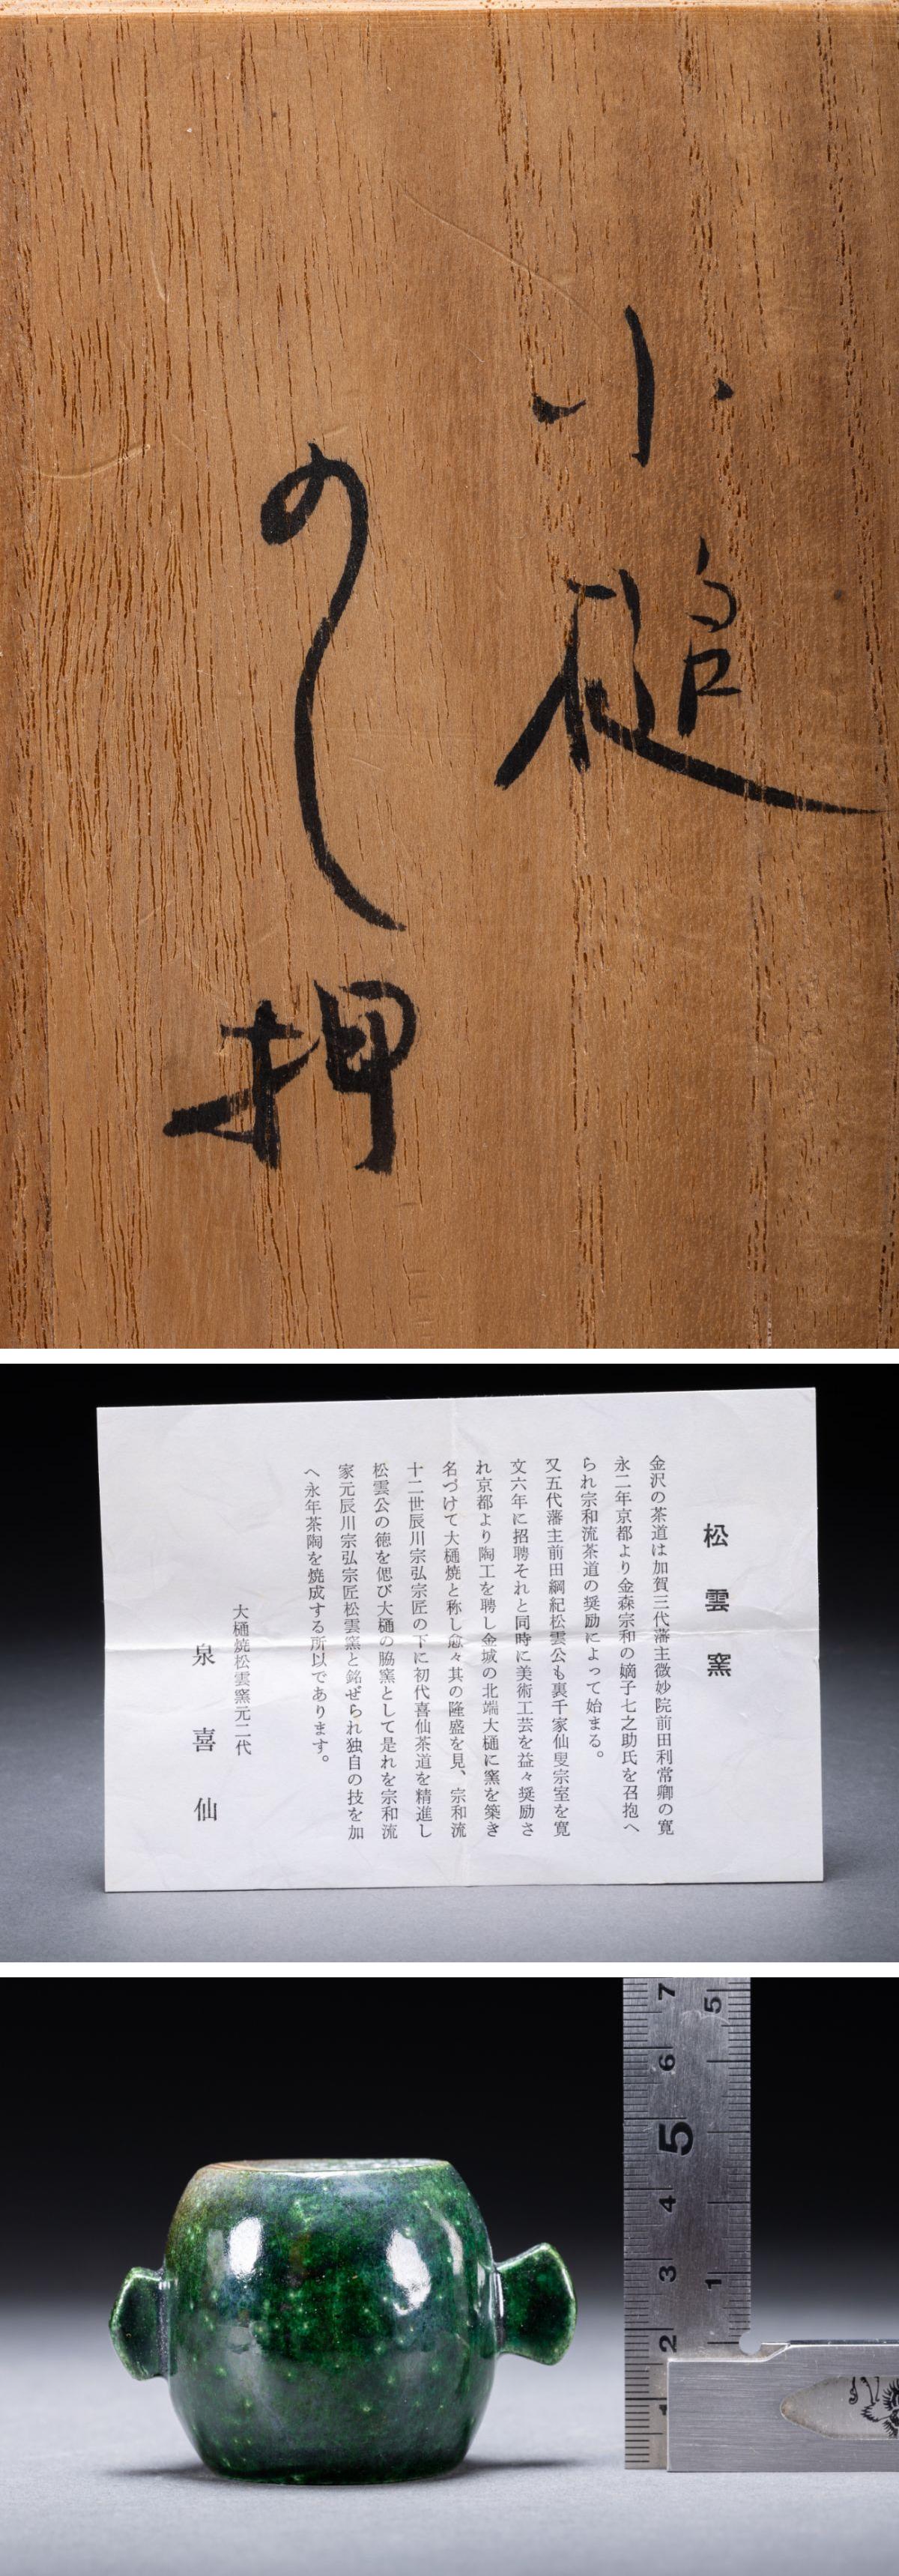 小槌
のし押
松雲窯
金沢の茶道は加賀三代藩主微妙院前田利常卿の寛
永二年京都より金森宗和の嫡子七之助氏を召抱へ
られ宗和流茶道の奨励によって始まる。
又五代藩主前田綱紀松雲公も裏千家仙叟宗室を寛
文六年に招聘それと同時に美術工芸を益々奨励さ
れ京都より陶工を聘し金城の北端大樋に窯を築き
名づけて大樋焼と称し愈々其の隆盛を見、宗和流
十二世辰川宗弘宗匠の下に初代喜仙茶道を精進し
松雲公の徳を偲び大樋の脇窯として是れを宗和流
家元辰川宗弘宗匠松雲窯と銘ぜられ独自の技を加
へ永年茶陶を焼成する所以であります。
大樋焼松雲窯元二代
泉喜仙
7
6
5
4
3
2
1
5
1